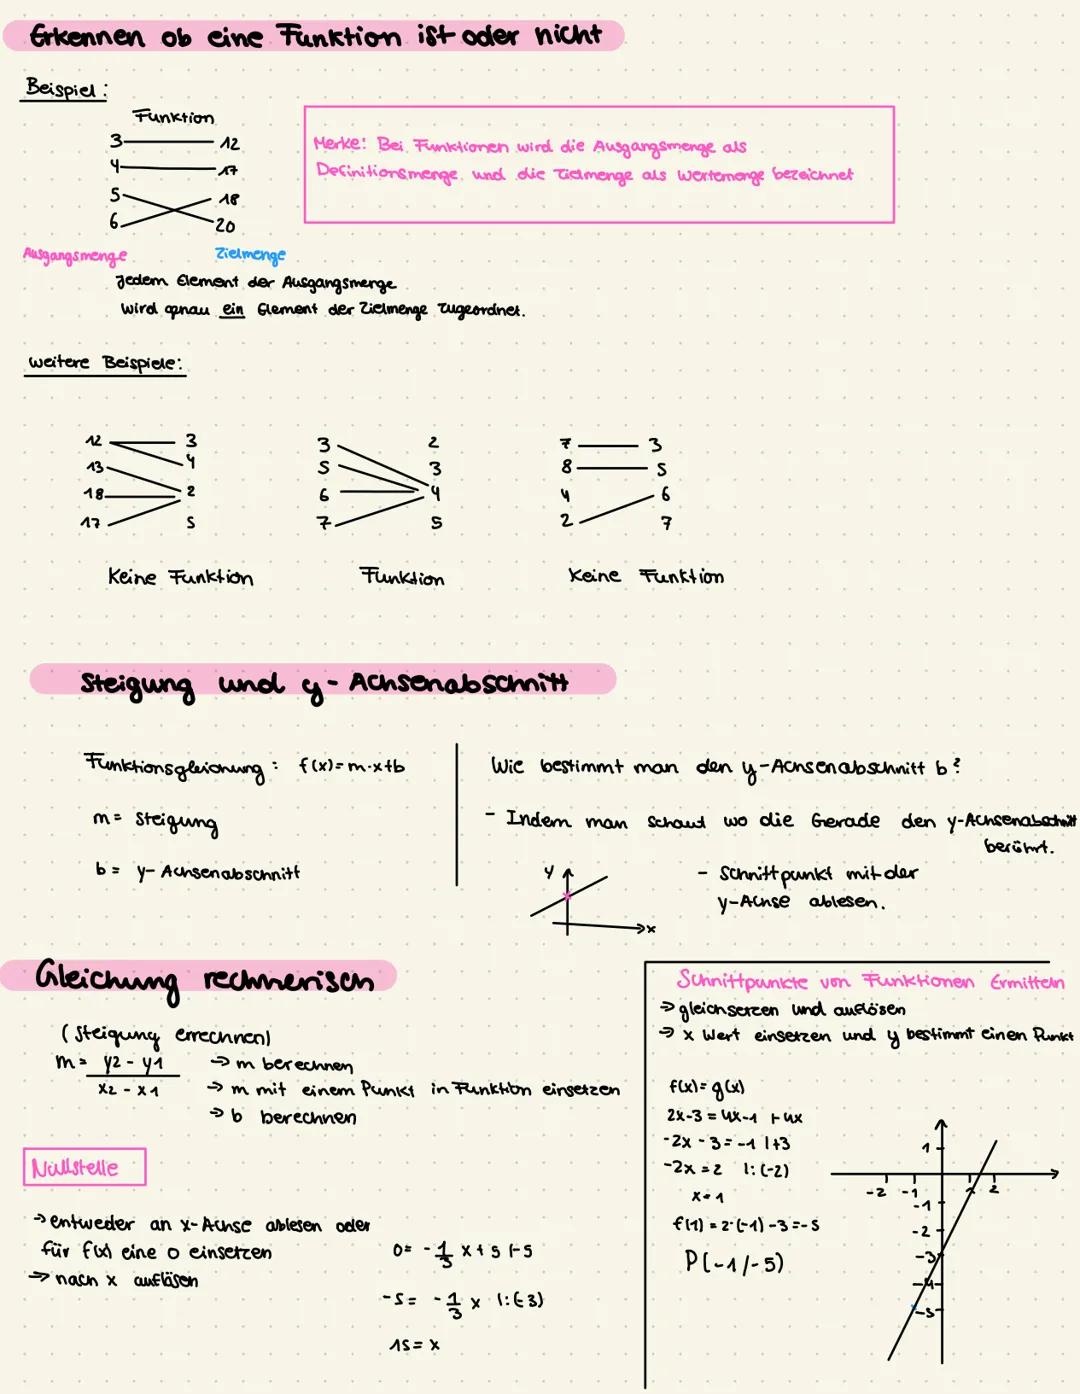 Erkennen ob eine Funktion ist oder nicht
Beispiel:
Funktion
3 12
4 17
5 18
6 20
Ausgangsmenge Zielmenge
Jedem Element der Ausgangsmenge
wird genau ein Element der Zielmenge zugeordnet.
Merke: Bei Funktionen wird die Ausgangsmenge als
Definitionsmenge und die Zielmenge als Wertemenge bezeichnet
weitere Beispiele:
12 3
13 4
18 2
17 5
Keine Funktion
3 2
5 3
6 4
7 5
Funktion
7 3
8 5
4 6
2 7
Keine Funktion
Steigung und y-Achsenabschnitt
Funktionsgleichung: f(x)=m·x+b
m= Steigung
b= y-Achsenabschnitt
Wie bestimmt man den y-Achsenabschnitt b?
- Indem man schaut wo die Gerade den y-Achsenabschnitt
berührt.
y
x
- Schnittpunkt mit der
y-Achse ablesen.
Gleichung rechnerisch
(Steigung errechnen)
m= y2-y1
x2-x1
→ m berechnen
→ m mit einem Punkt in Funktion einsetzen
→ b berechnen
Nullstelle
→ entweder an x-Achse ablesen oder
für f(x) eine 0 einsetzen
→ nach x auflösen
0= -1/3 x+5 |-5
-5= -1/3 x |:(-3)
15=x
Schnittpunkte von Funktionen Ermitteln
→ gleichsetzen und auflösen
→ x Wert einsetzen und y bestimmt einen Punkt
f(x)=g(x)
2x-3=4x-1 |-4x
-2x-3=-1 |+3
-2x=2 |:(-2)
x=1
f(1)=2·(-1)-3=-5
P(-1/-5)
1
-2 -1 1 2
-1
-2
-3
-4
-5